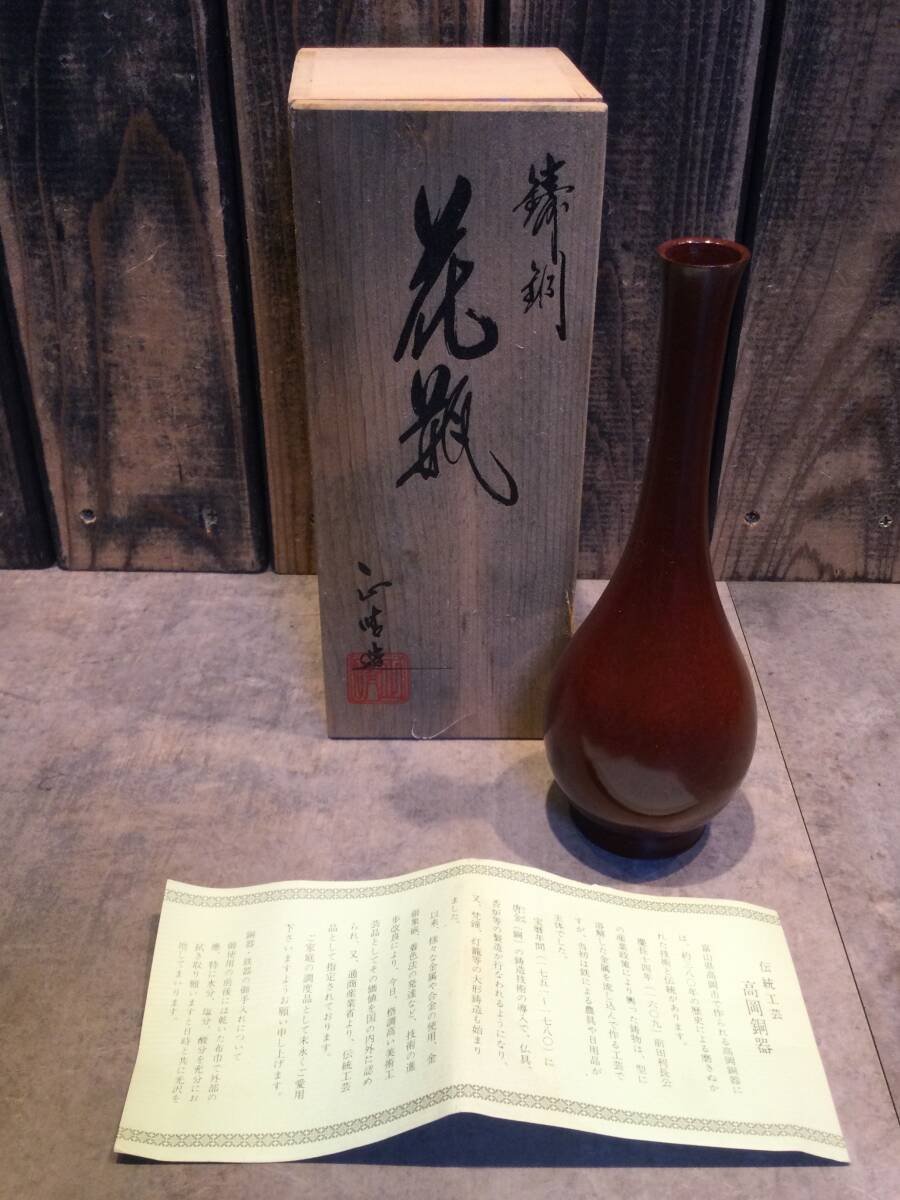 鋳銅
花瓶
正晴造
伝統工芸
高岡銅器
富山県高岡市で作られる高岡銅器に
は、約三八〇年の歴史による磨きぬか
れた技術と伝統があります。
慶長十四年(一六〇九)前田利長公
の産業政策により興った鋳物は、型に
溶解した金属を流し込んで作る工芸で
すが、当初は鉄による農具や日用品が
主体でした。
宝暦年間(一七五一〜一七八〇)に
唐金(銅)の鋳造技術の導入で、仏具、
香炉等の製造が行なわれるようになり、
又、梵鐘、灯籠等の大型鋳造も始まり
ました。
以来、様々な金属や合金の使用、金
銀象嵌、着色法の発達など、技術の進
歩改良により、今日、格調高い美術工
芸品としてその価値を国の内外に認め
られ、又、通商産業省より、伝統工芸
品として指定されております。
ご家庭の調度品として末永くご愛用
下さいますようお願い申し上げます。
銅器・鉄器の御手入れについて
御使用の前後には乾いた布巾で外部の
塵、特に水分、塩分、酸分を充分にお
拭き取り願いますと日時と共に光沢を
増してまいります。